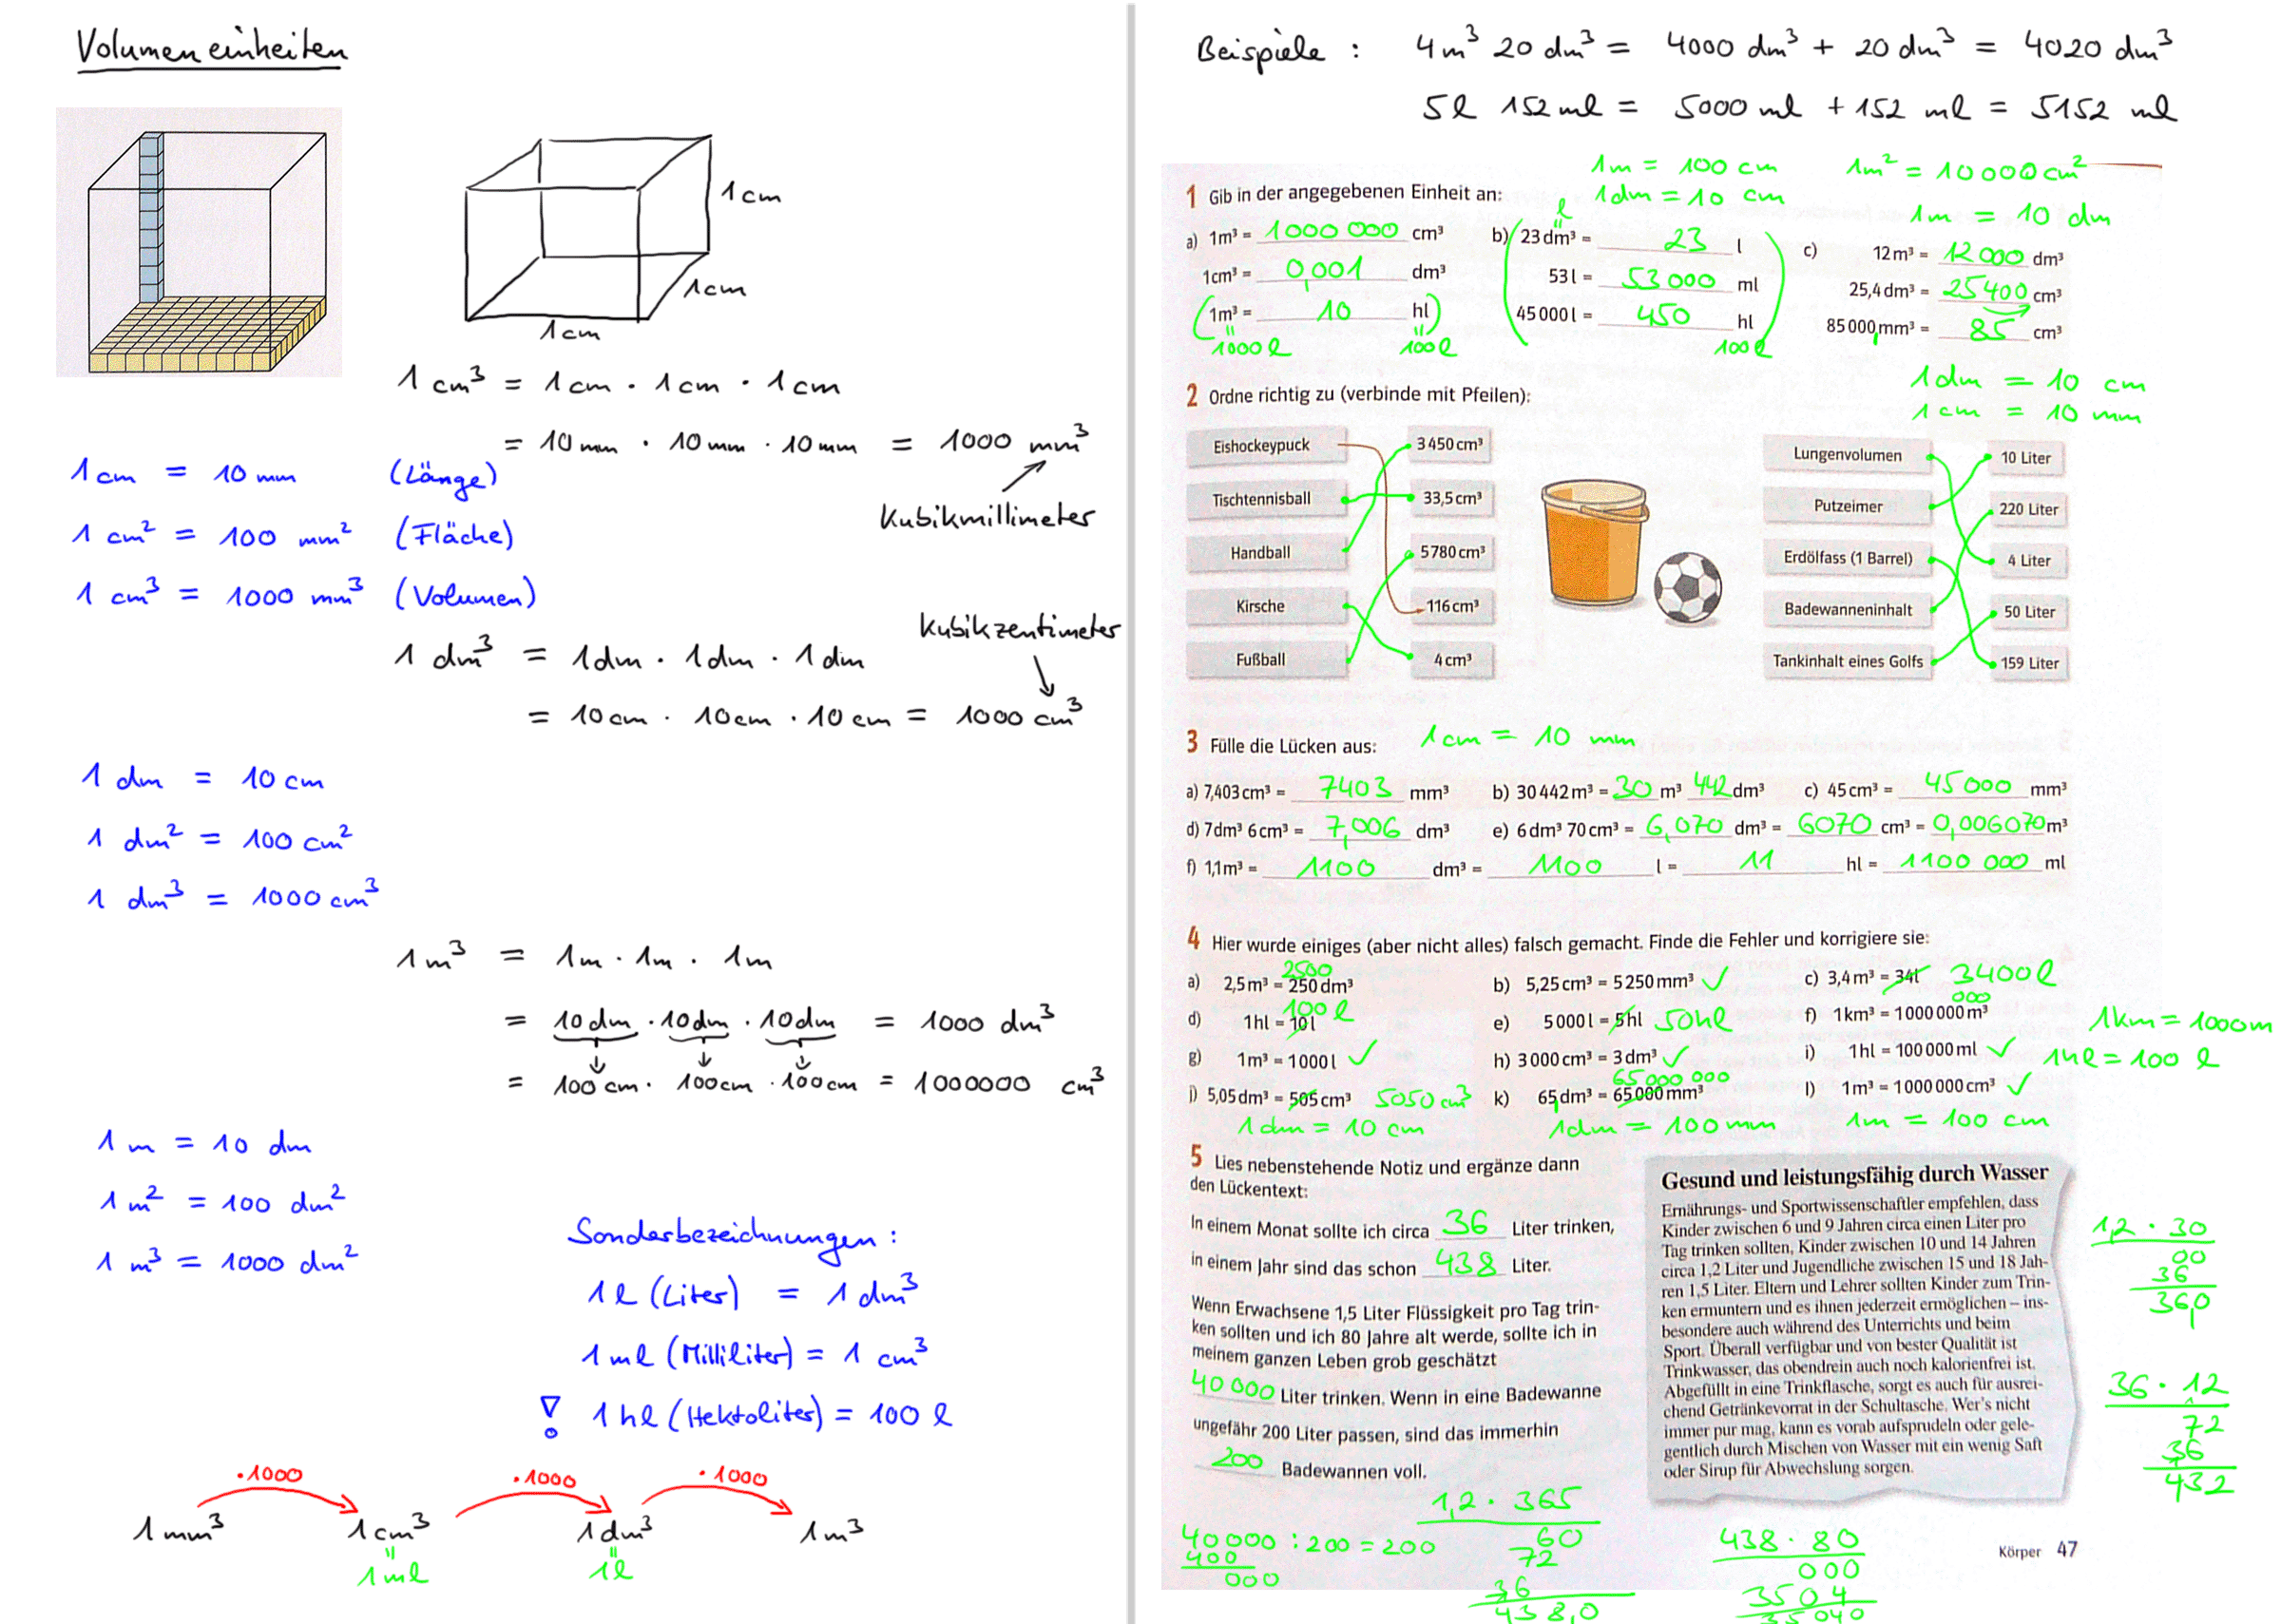 Volumeneinheiten
1 cm
1 cm
1 cm
1 cm³ = 1 cm · 1 cm · 1 cm
= 10 mm · 10 mm · 10 mm = 1000 mm³
Kubikmillimeter
1 cm = 10 mm (Länge)
1 cm² = 100 mm² (Fläche)
1 cm³ = 1000 mm³ (Volumen)
Kubikzentimeter
1 dm³ = 1dm · 1dm · 1 dm
= 10 cm · 10 cm · 10 cm = 1000 cm³
1 dm = 10 cm
1 dm² = 100 cm²
1 dm³ = 1000 cm³
1 m³ = 1m · 1m · 1m
= 10 dm · 10dm · 10dm = 1000 dm³
= 100 cm · 100cm · 100cm = 1000000 cm³
1 m = 10 dm
1 m² = 100 dm²
1 m³ = 1000 dm²
Sonderbezeichnungen :
1 l (Liter) = 1 dm³
1 ml (Milliliter) = 1 cm³
! 1 hl (Hektoliter) = 100 l
·1000 ·1000 ·1000
1 mm³ 1 cm³ 1 dm³ 1 m³
= =
1 ml 1l
Beispiele : 4m³ 20 dm³ = 4000 dm³ + 20 dm³ = 4020 dm³
5l 152 ml = 5000 ml + 152 ml = 5152 ml
1m = 100 cm 1m² = 10000 cm²
1 Gib in der angegebenen Einheit an: 1dm = 10 cm
1m = 10 dm
a) 1m³ = 1000 000 cm³ b) 23dm³ = 23 l c) 12m³ = 12 000 dm³
1cm³ = 0,001 dm³ 53l = 53 000 ml 25,4dm³ = 25400 cm³
(1m³ = 10 hl) 45000l = 450 hl 85000mm³ = 85 cm³
1000 l 100 l 100 l
1dm = 10 cm
2 Ordne richtig zu (verbinde mit Pfeilen):
1 cm = 10 mm
Eishockeypuck 3450cm³ Lungenvolumen 10 Liter
Tischtennisball 33,5cm³ Putzeimer 220 Liter
Handball 5780cm³ Erdölfass (1 Barrel) 4 Liter
Kirsche 116cm³ Badewanneninhalt 50 Liter
Fußball 4cm³ Tankinhalt eines Golfs 159 Liter
3 Fülle die Lücken aus: 1 cm = 10 mm
a) 7,403cm³ = 7403 mm³ b) 30442m³ = 30 m³ 442 dm³ c) 45cm³ = 45 000 mm³
d) 7dm³ 6cm³ = 7,006 dm³ e) 6dm³ 70cm³ = 6,070 dm³ = 6070 cm³ = 0,006070 m³
f) 1,1m³ = 1100 dm³ = 1100 l = 11 hl = 1100 000 ml
4 Hier wurde einiges (aber nicht alles) falsch gemacht. Finde die Fehler und korrigiere sie:
2500
a) 2,5m³ = 250dm³ b) 5,25cm³ = 5250mm³ ✓ c) 3,4m³ = 34l 3400 l
100 l 000
d) 1hl = 10l e) 5000l = 5hl 50hl f) 1km³ = 1000000m³ 1km = 1000m
g) 1m³ = 1000l ✓ h) 3000cm³ = 3dm³ ✓ i) 1hl = 100000ml ✓ 1hl = 100 l
65 000 000
j) 5,05dm³ = 505cm³ 5050 cm³ k) 65dm³ = 65000mm³ l) 1m³ = 1000000cm³ ✓
1dm = 10 cm 1dm = 100 mm 1m = 100 cm
5 Lies nebenstehende Notiz und ergänze dann
den Lückentext:
In einem Monat sollte ich circa 36 Liter trinken,
in einem Jahr sind das schon 438 Liter.
Wenn Erwachsene 1,5 Liter Flüssigkeit pro Tag trin-
ken sollten und ich 80 Jahre alt werde, sollte ich in
meinem ganzen Leben grob geschätzt
40 000 Liter trinken. Wenn in eine Badewanne
ungefähr 200 Liter passen, sind das immerhin
200 Badewannen voll.
Gesund und leistungsfähig durch Wasser
Ernährungs- und Sportwissenschaftler empfehlen, dass
Kinder zwischen 6 und 9 Jahren circa einen Liter pro
Tag trinken sollten, Kinder zwischen 10 und 14 Jahren
circa 1,2 Liter und Jugendliche zwischen 15 und 18 Jah-
ren 1,5 Liter. Eltern und Lehrer sollten Kinder zum Trin-
ken ermuntern und es ihnen jederzeit ermöglichen – ins-
besondere auch während des Unterrichts und beim
Sport. Überall verfügbar und von bester Qualität ist
Trinkwasser, das obendrein auch noch kalorienfrei ist.
Abgefüllt in eine Trinkflasche, sorgt es auch für ausrei-
chend Getränkevorrat in der Schultasche. Wer's nicht
immer pur mag, kann es vorab aufsprudeln oder gele-
gentlich durch Mischen von Wasser mit ein wenig Saft
oder Sirup für Abwechslung sorgen.
1,2 · 30
00
36
36,0
36 · 12
72
36
432
1,2 · 365
60
72
36
438,0
40000 : 200 = 200
400
000
438 · 80
000
3504
35 040
Körper 47